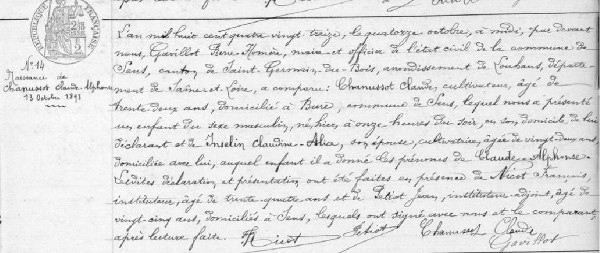 RÉPUBLIQUE FRANÇAISE
N° 14
Naissance de
Chanussot Claude-Alphonse
13 Octobre 1891
L'an mil huit cent quatre vingt treize, le quatorze octobre, à midi, par devant
nous, Gavillot Pierre Homère, maire et officier de l'état civil de la commune de
Sens, canton de Saint-Germain-du-Bois, arrondissement de Louhans, départe-
ment de Saône-et-Loire, a comparu: Chanussot Claude, cultivateur, âgé de
trente deux ans, domicilié à Bure, commune de Sens, lequel nous a présenté
un enfant du sexe masculin, né hier, à onze heures du soir, en son domicile, de lui
déclarant et de Inselin Claudine-Alix, son épouse, cultivatrice, âgée de vingt deux ans,
domiciliée avec lui, auquel enfant il a donné les prénoms de Claude-Alphonse.
Lesdites déclaration et présentation ont été faites en présence de Nicot François,
instituteur, âgé de trente quatre ans et de Petiot Jean, instituteur-adjoint, âgé de
vingt-cinq ans, domiciliés à Sens, lesquels ont signé avec nous et le comparant,
après lecture faite. Nicot Petiot Chanussot Claude
Gavillot